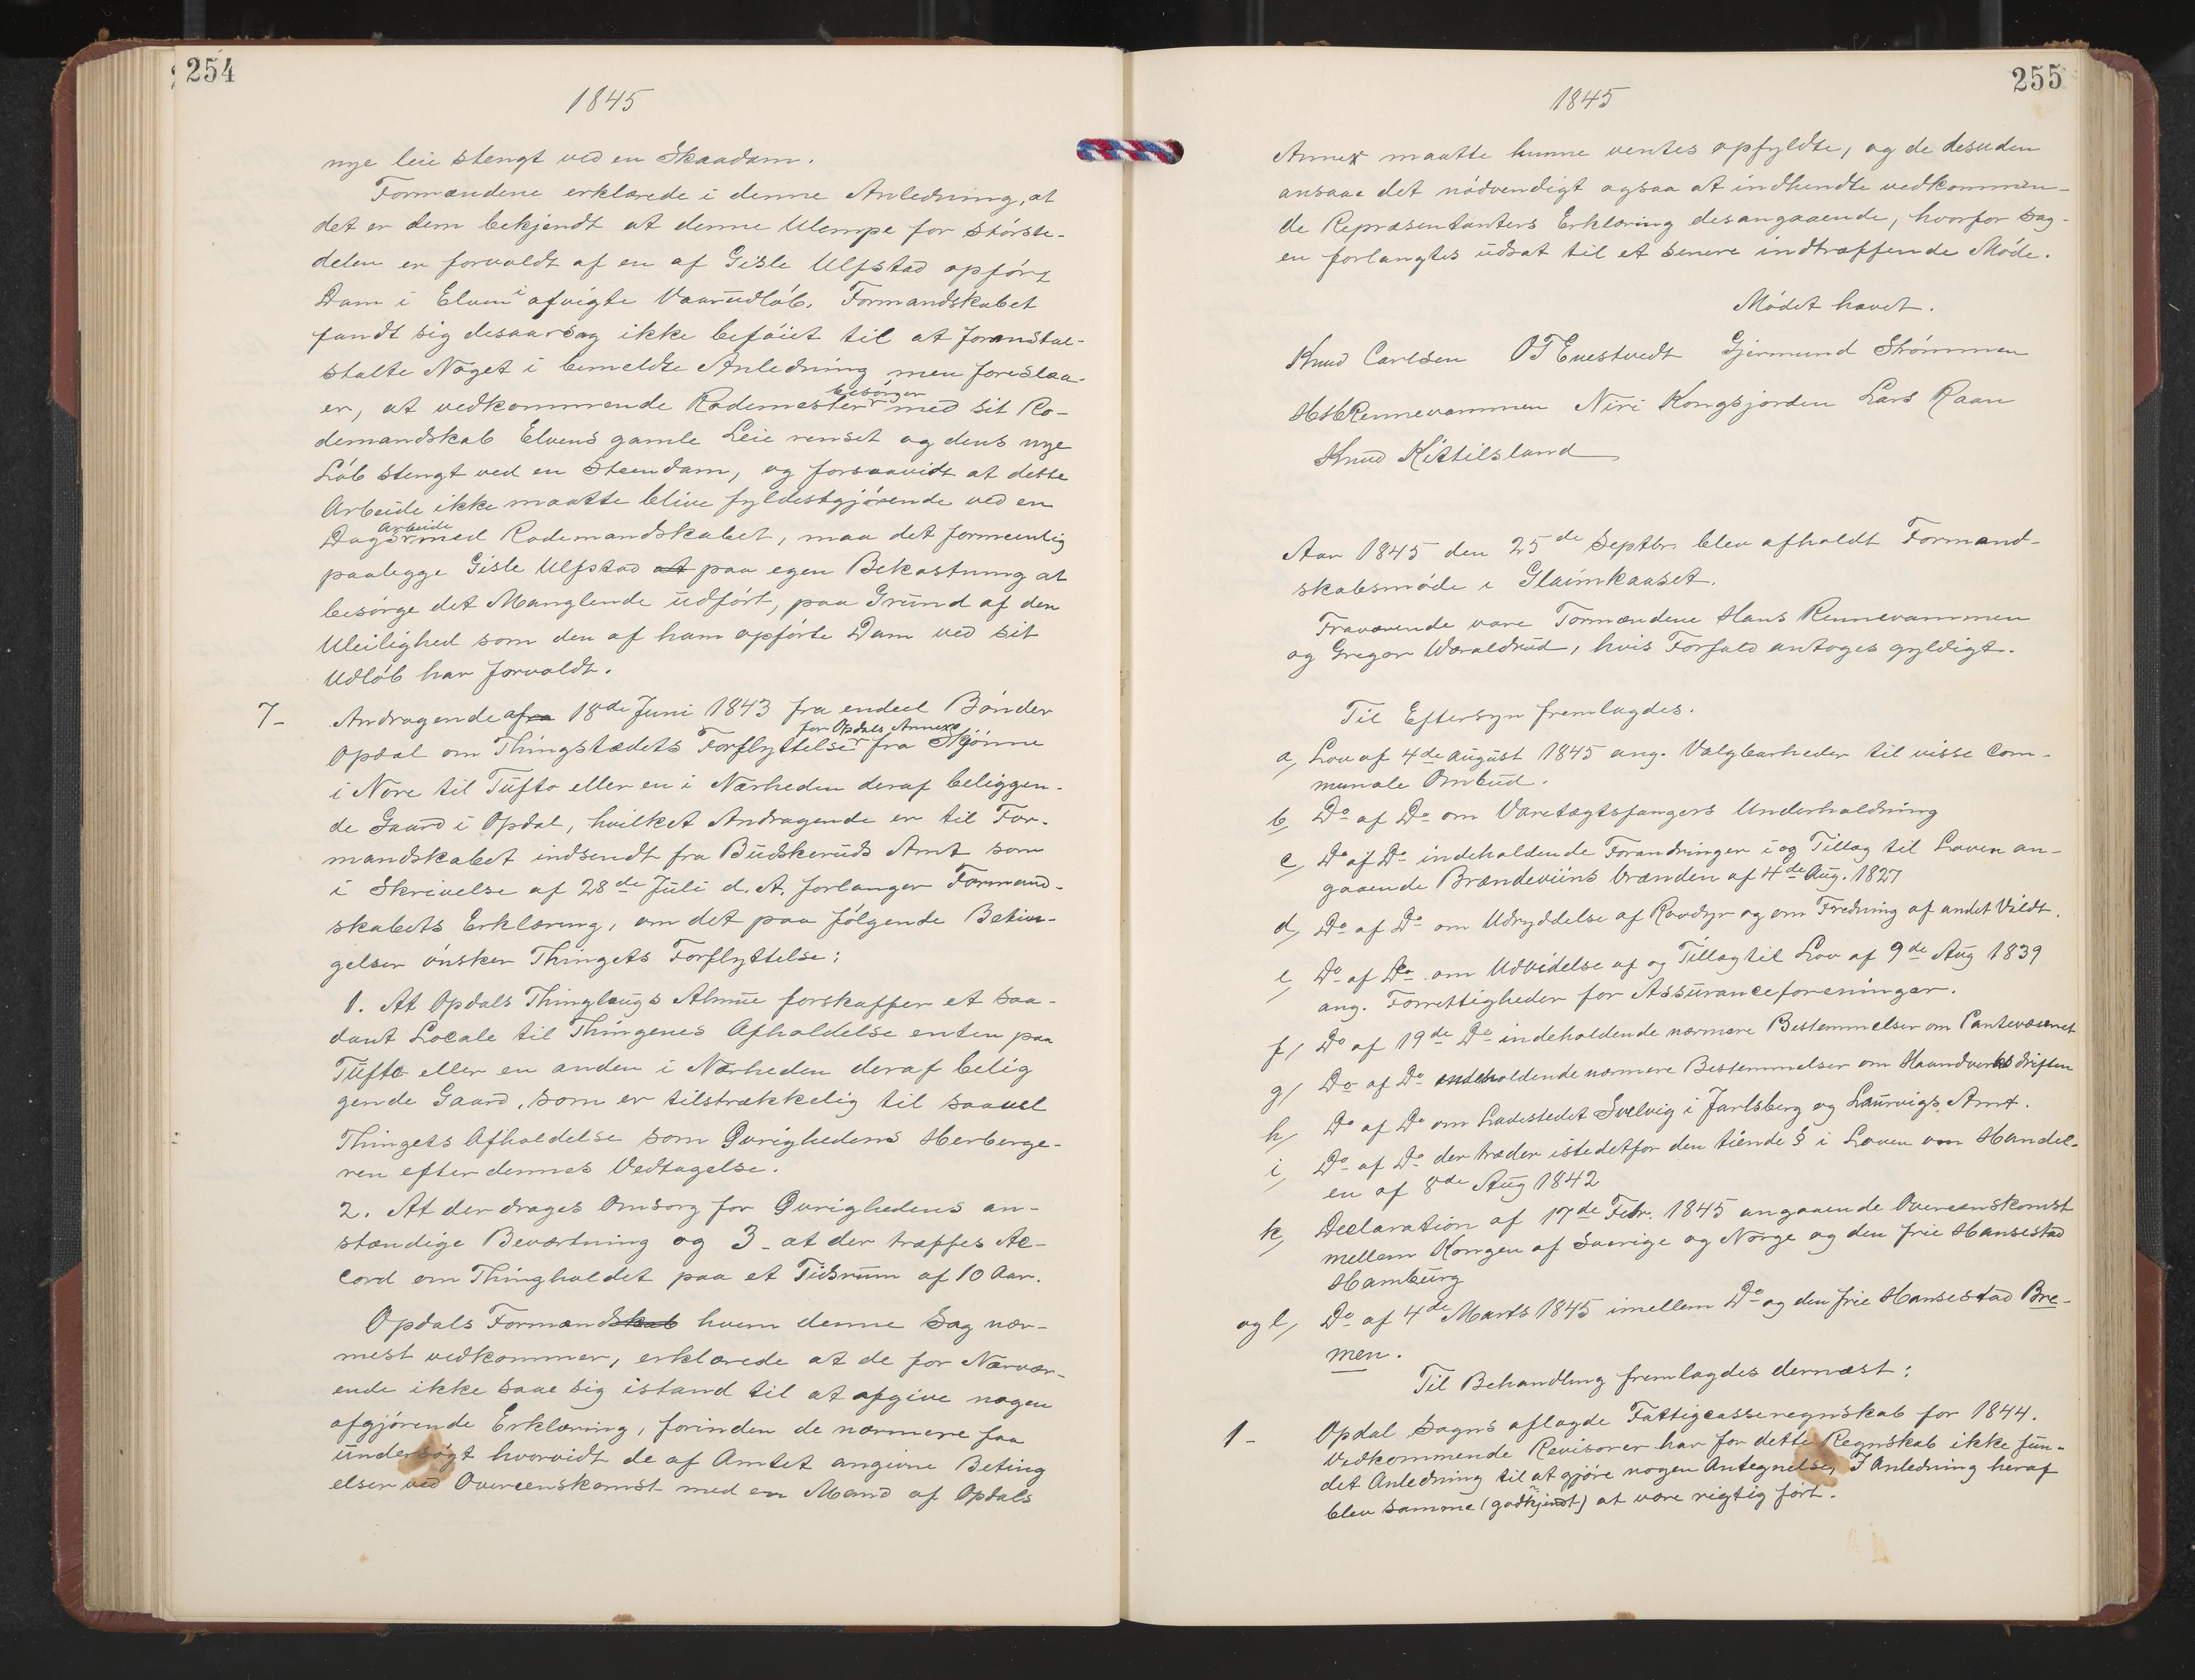 254
1845
nye leie stengt ved en Skaadam.
Formændene erklærede i denne Anledning, at
det er dem bekjendt at denne Ulempe for störste-
delen er forvoldt af en af Gisle Ulfstad opfört
Dam i Elven i afvigte Vaarudlöb. Formandskabet
fandt sig desaarsag ikke beföiet til at foranstal-
stalte Noget i bemeldte Anledning men foreslaa-
er, at vedkommende Rodemester besörger med sit Ro-
demandskab Elvens gamle Leie renset og dens nye
Löb stengt ved en Steendam, og forsaavidt at dette
Arbeide ikke maatte blive fyldestgjörende ved en
Dags Arbeide med Rodemandskabet, maa det formeentlig
paalegge Gisle Ulfstad at paa egen Bekostning at
besörge det Manglende udfört, paa Grund af den
Uleilighed som den af ham opförte Dam ved sit
Udlöb har forvoldt.
7- Andragende af fra 18de Juni 1843 fra endeel Bönder
Opdal om Thingstædets Forflyttelse for Opdals Annex fra Skjönne
i Nore til Tufto eller en i Nærheden deraf beliggen-
de Gaard i Opdal, hvilket Andragende er til For-
mandskabet indsendt fra Buskeruds Amt som
i Skrivelse af 28de Juli d. A. forlanger Formand-
skabets Erklæring, om det paa fölgende Betin-
gelser önsker Thingets Forflyttelse:
1. At Opdals Thinglaugs Almue forskaffer et saa-
dant Locale til Thingenes Afholdelse enten paa
Tufto eller en anden i Nærheden deraf belig
gende Gaard, som er tilstrækkelig til saavel
Thingets Afholdelse som Övrighedens Herberge-
ren efter dennes Vedtagelse.
2. At der drages Omsorg for Övrighedens an-
stændige Beværtning og 3- at der træffes Ac-
cord om Thingholdet paa et Tidsrum af 10 Aar.
Opdals Formandskab hvem denne Sag nær-
mest vedkommer, erklærede at de for Nærvær-
ende ikke saae sig istand til at afgive nogen
afgjörende Erklæring, forinden de nærmere faa
undersögt hvorvidt de af Amtet angivne Beting
elser ved Overeenskomst med en Mand af Opdals
255
1845
Annex maatte kunne ventes opfyldte, og de desuden
ansaae det nödvendigt ogsaa at indhendte vedkommen-
de Repræsentanters Erklæring desangaaende, hvorfor Sag-
en forlangtes udsat til et senere indtræffende Möde.
Mödet hævet.
Knud Carlsen OTEnestvedt Gjermund Strömmen
HHRennevammen Niri Kongsjorden Lars Raan
Knud Kittilsland
Aar 1845 den 25de Septbr. blev afholdt Formand-
skabsmöde i Glaimkaaset.
Fraværende vare Formændene Hans Rennevammen
og Gregar Waraldrud, hvis Forfald antoges gyldigt.
Til Eftersyn fremlagdes.
a, Lov af 4de august 1845 ang. Valgbarheder til visse Com-
munale Ombud.
b, Do af Do om Varetægtsfangers Underholdning
c, Do af Do indeholdende Forandringer i og Tillæg til Loven an-
gaaende Brændeviins brænden af 4de Aug. 1827
d, Do af Do om Udryddelse af Rovdyr og om Fredning af andet Vildt.
e, Do af Do om Udvidelse af og Tillæg til Lov af 9de Aug 1839
ang. Forrettigheder for Assuranceforeninger.
f, Do af 19de Do indeholdende nærmere Bestemmelser om Pantevæsenet
g, Do af Do indeholdende nærmere Bestemmelser om Haandverksdriften
h, Do af Do om Ladestedet Svelvig i Jarlsberg og Laurvigs Amt.
i, Do af Do der træder istedetfor den tiende § i Loven om Handel-
en af 8de Aug 1842
k, Declaration af 17de Febr. 1845 angaaende Overeenskomst
mellem Kongen af Sverige og Norge og den frie Hansestad
Hamburg
og l, Do af 4de Marts 1845 imellem Do og den frie Hansestad Bre-
men.
Til Behandling fremlagdes dernæst:
1- Opdal Sogns aflagde Fattigcasseregnskab for 1844.
Vedkommende Revisorer har for dette Regnskab ikke fun-
det Anledning til at gjöre nogen Antegnelse, I Anledning heraf
blev samme (godkjendt) at være rigtig fört.